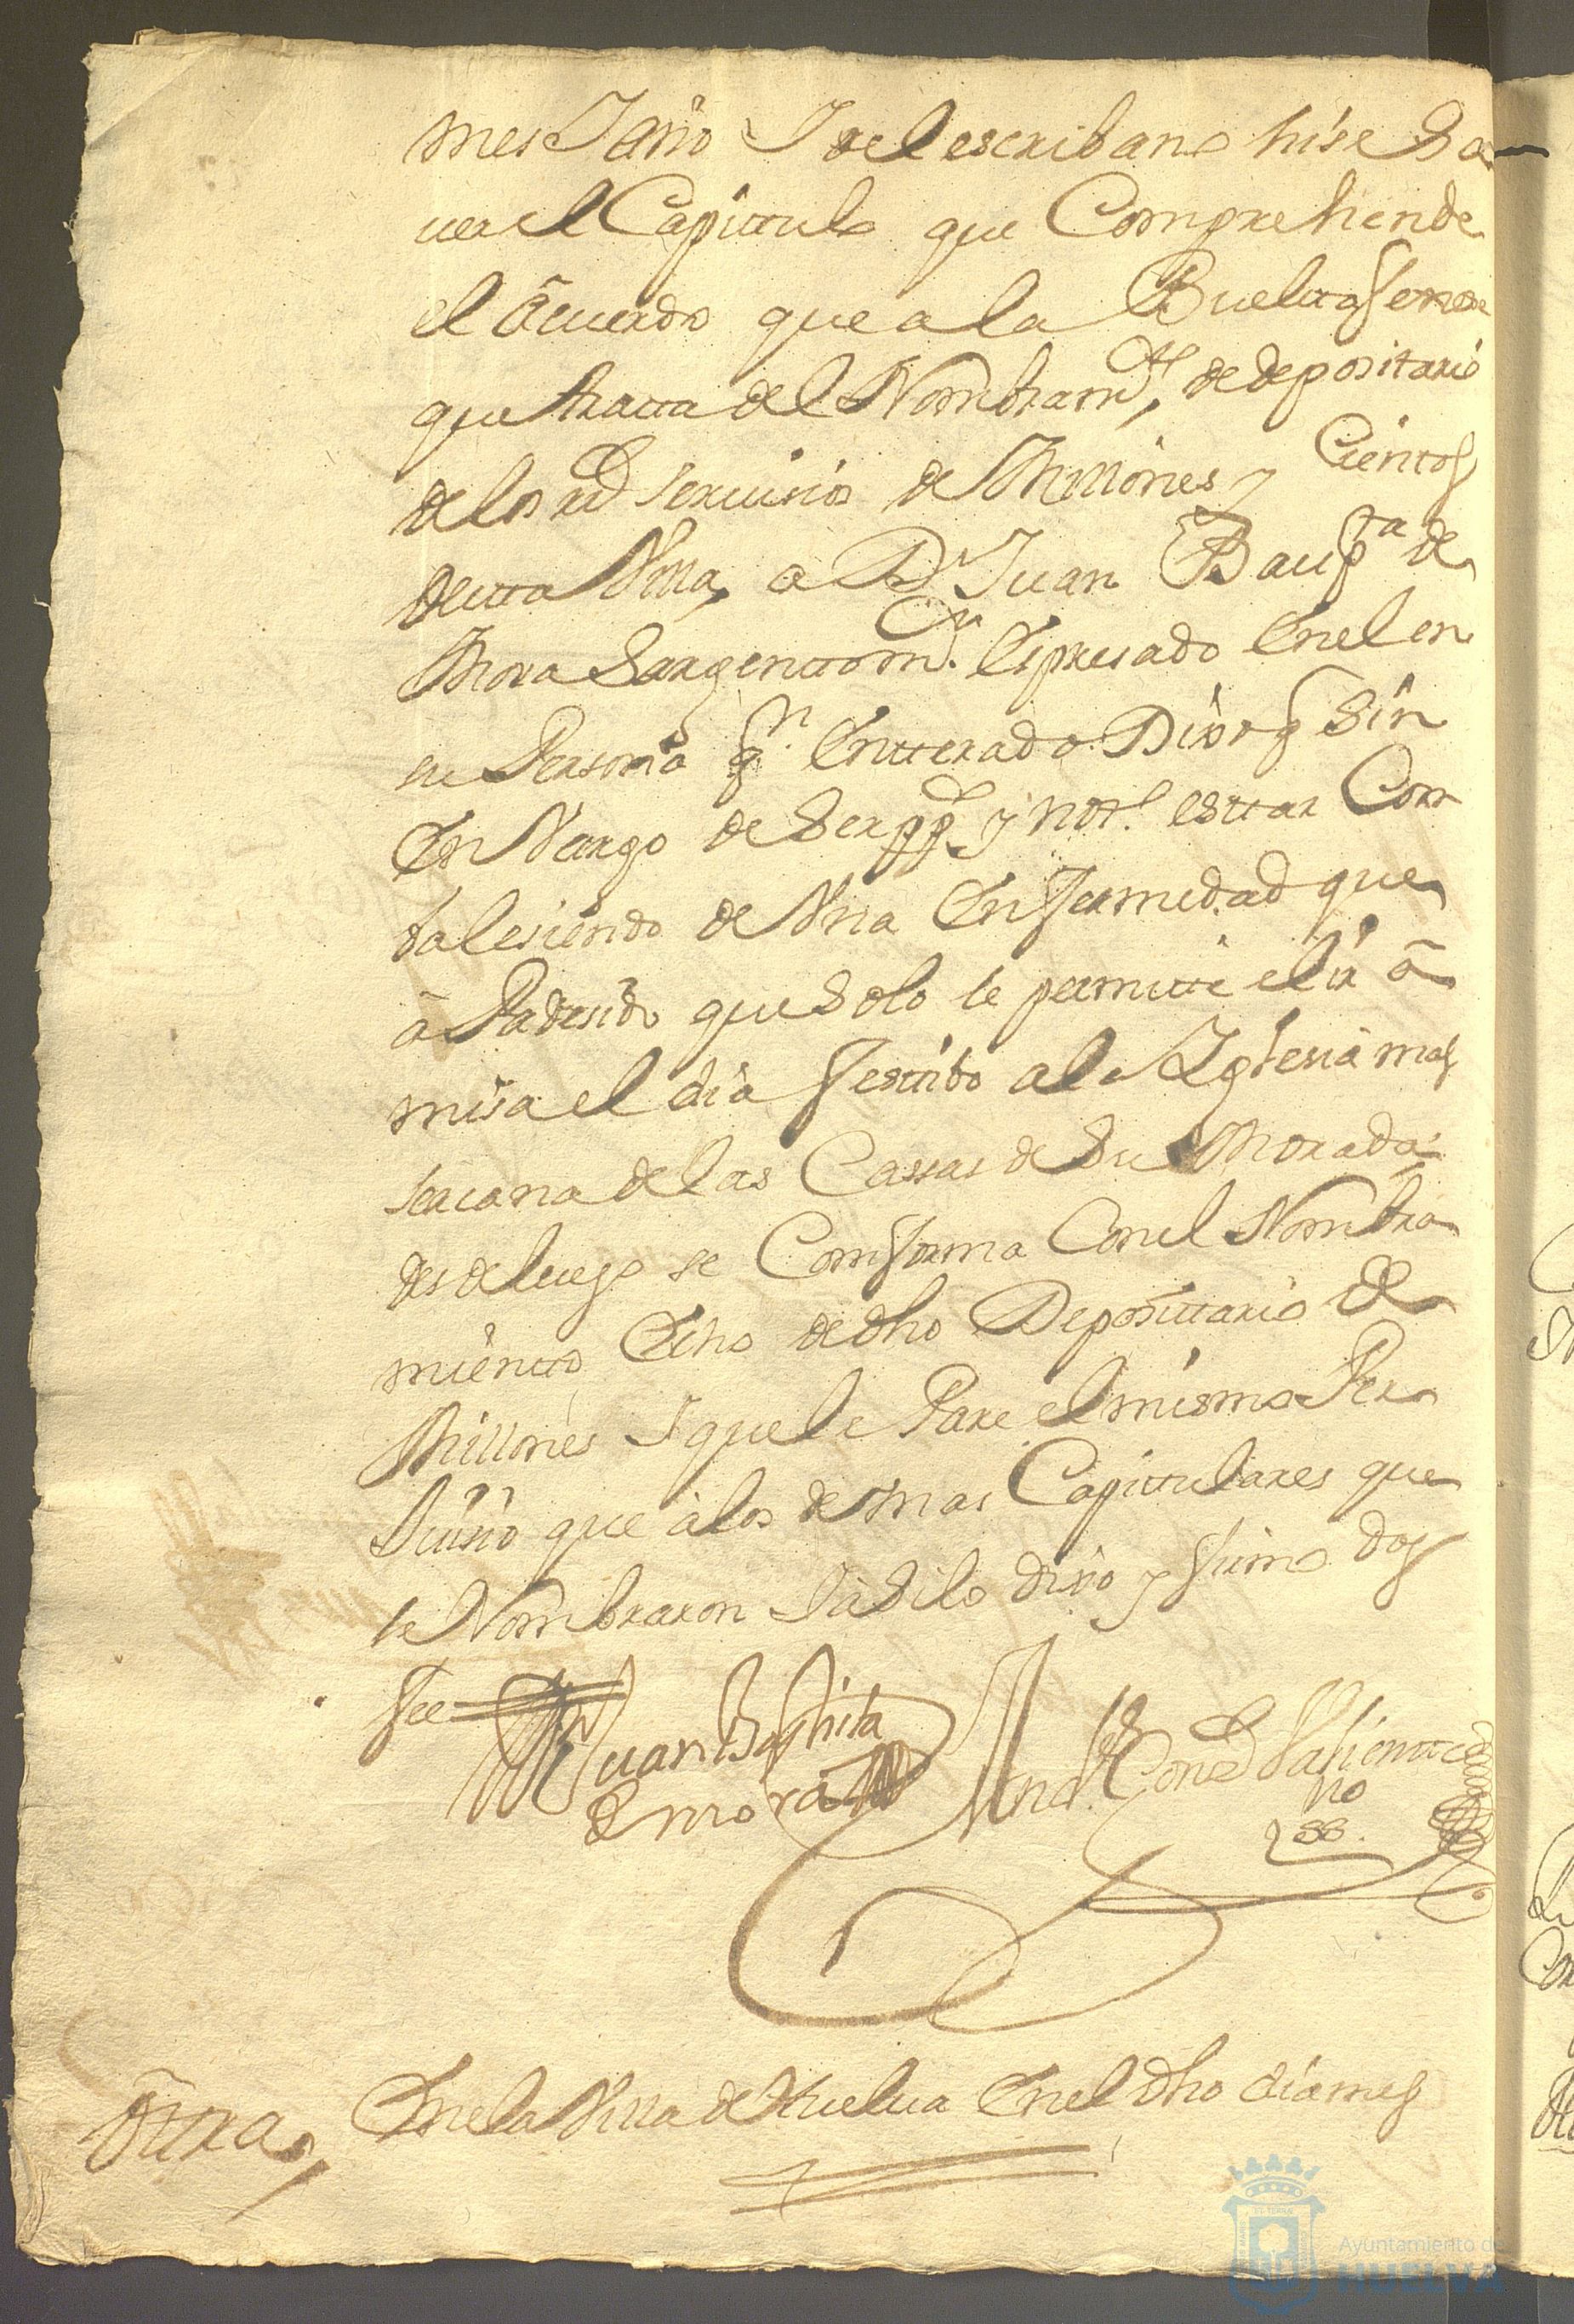 mes I año Io el escribano hise Sa
uer el Capittulo que Comprehende
el Acuerdo que a la Buelta
que tratta del Nombramto, de depositario
de los rs Seruisios de Millones y Cientos
de esta Villa, a Dn Juan Baupta de
Mora Sargento mr. Espresado En el en
su Persona qn. Entterado Dixo q Sin
En Vargo de Ser y estar Com
balesiendo de Vna Enfermedad que
a Padesido que Solo le permitte el ir a
misa el dia festibo a la Iglesia mas
sercana de las Cassas de Su Morada
desde luego se Comforma Con el Nombra
miento Echo de dho Deposittario de
Millones I que le Pare el mismo Per
Juisio que a los de mas Capittulares que
le Nombraron I asi lo dixo y firmo doy
fee
Juan Baptista
de mora
Valiente
no
En la Villa de Huelua En el dho dia mes
Ottra,
Ayuntamiento de
HUELVA